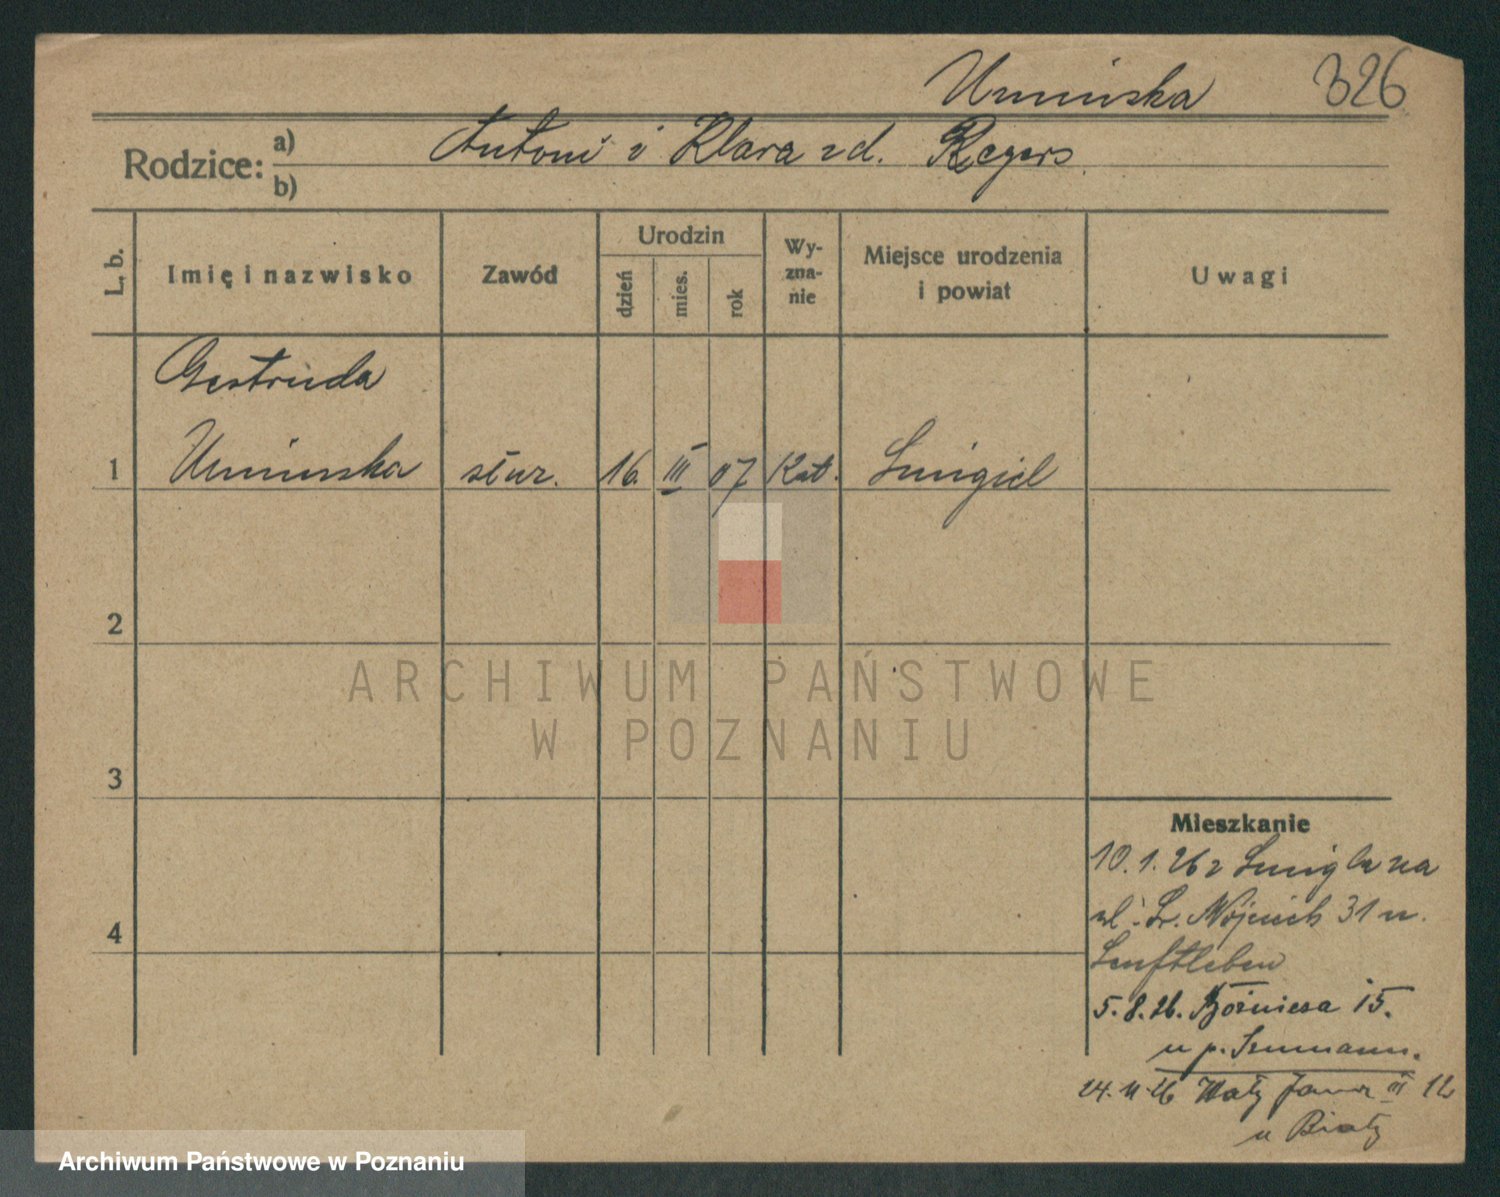 Umińska 326
Rodzice: a) Antoni i Klara zd. Regers
b)
L. b.
Imię i nazwisko
Zawód
Urodzin
dzień
mies.
rok
Wy-
zna-
nie
Miejsce urodzenia
i powiat
Uwagi
Gertruda
1 Umińska służ. 16. III 07 Kat. Śmigiel
2
3
4
Mieszkanie
10.1.26 z Śmigla na
ul. Św. Wojciech 31 u.
Senftleben
5.8.26. Bóżnicza 15.
u p. Szumann.
24. 11 26 Wały Jana III 12
u Biały
ARCHIWUM PAŃSTWOWE
W POZNANIU
Archiwum Państwowe w Poznaniu